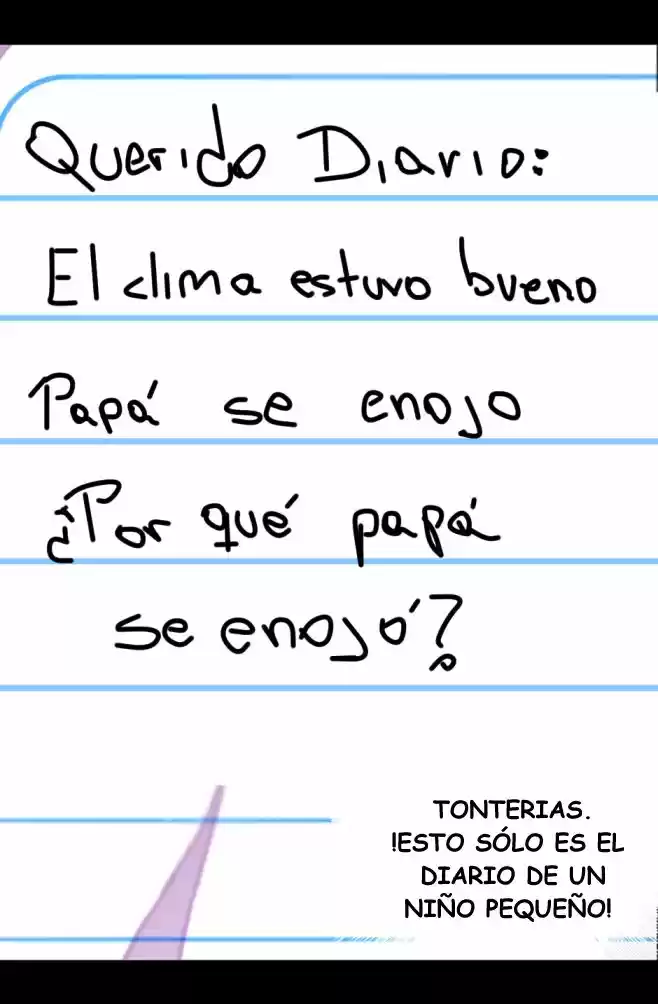 Querido Diario:
El clima estuvo bueno
Papá se enojo
¿Por qué papá
se enojó?
TONTERIAS.
!ESTO SÓLO ES EL
DIARIO DE UN
NIÑO PEQUEÑO!